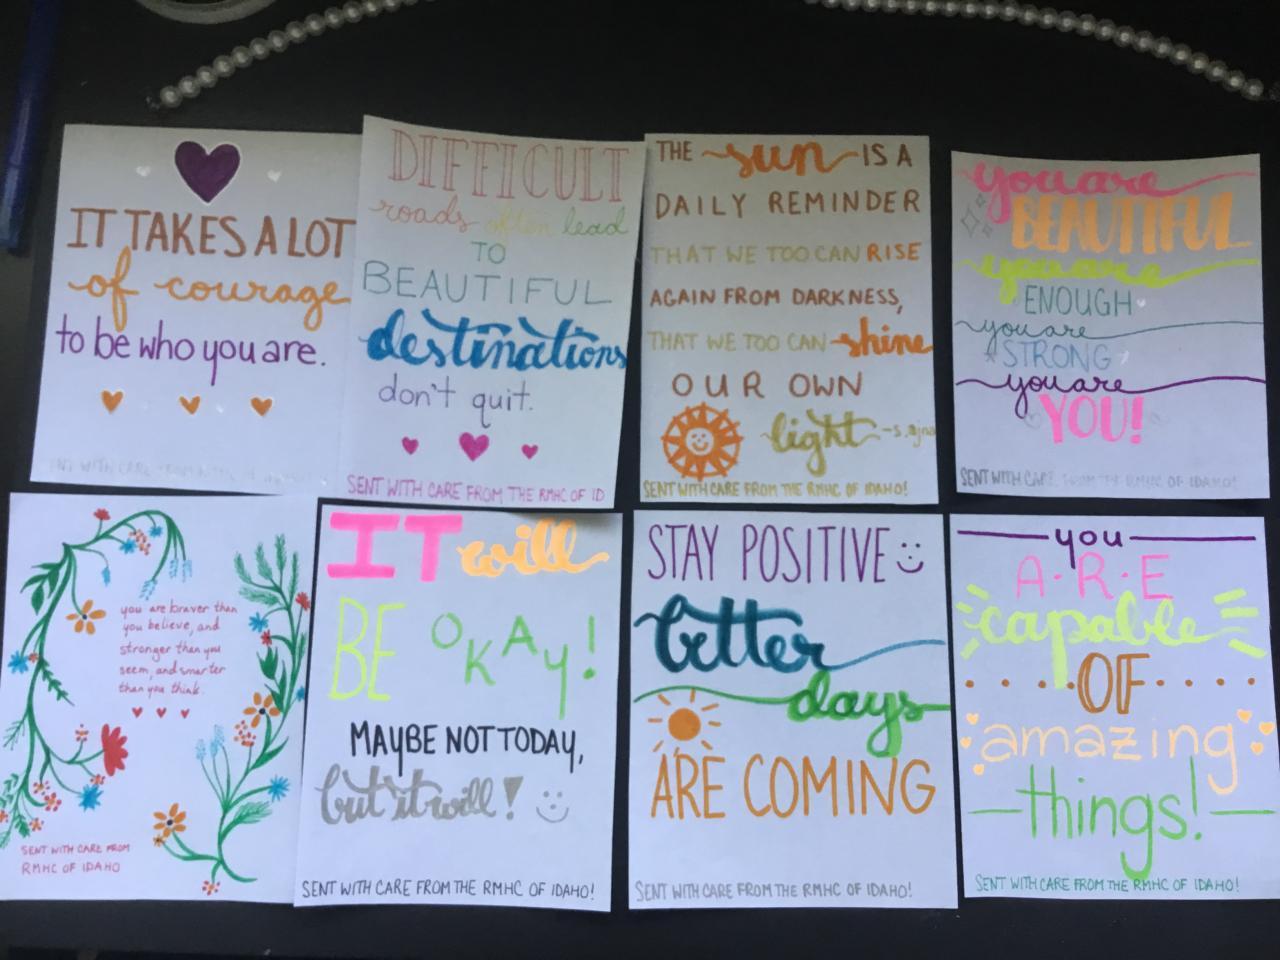 IT TAKES A LOT
of courage
to be who you are.
SENT WITH CARE FROM
DIFFICULT
roads often lead
TO
BEAUTIFUL
destinations
don't quit.
SENT WITH CARE FROM THE RMHC OF ID
THE sun IS A
DAILY REMINDER
THAT WE TOO CAN RISE
AGAIN FROM DARKNESS,
THAT WE TOO CAN shine
OUR OWN
light
SENT WITH CARE FROM THE RMHC OF IDAHO!
you are
BEAUTIFUL
you are
ENOUGH
you are
STRONG
you are
YOU!
SENT WITH CARE FROM THE RMHC OF IDAHO!
you are braver than
you believe, and
stronger than you
seem, and smarter
than you think.
SENT WITH CARE FROM
RMHC OF IDAHO
IT will
BE OKAY!
MAYBE NOT TODAY,
but it will!
SENT WITH CARE FROM THE RMHC OF IDAHO!
STAY POSITIVE
better
days
ARE COMING
SENT WITH CARE FROM THE RMHC OF IDAHO!
you
A·R·E
capable
OF
amazing
things!
SENT WITH CARE FROM THE RMHC OF IDAHO!